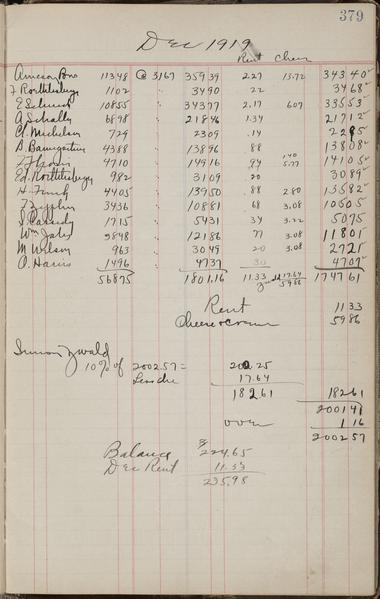 379
Dec 1919
Rent Cheese
Ameson Bro 11348 @ 3167 359 39 2.27 13.72 343 40
F Rorthlisberger 1102 " 34 90 22 34 68
E Schmid 10855 " 343 77 2.17 6 07 335 53
A Schally 6898 " 218 46 1.34 217 12
C. Michelson 729 " 23 09 .14 22 95
B. Baumgartner 4388 " 138 96 .88 138 08
4710 " 149 16 94 1.40 5.77 141 05
Ed. Rorthlisberger 982 " 31 09 20 30 89
H. Funk 4405 " 139 50 .88 2 80 135 82
3436 " 108 81 68 3.08 105 05
S. Cassidy 1715 " 54 31 34 3.22 50 75
Wm 3848 " 121 86 77 3.08 118 01
M Wilson 963 " 30 49 20 3.08 27 21
O. Harris 1496 " 47 37 30 47 07
56875 1801.16 11.33 17.64 1747 61
59 86
Rent 11 33
Cheese + Cream 59 86
10% of 2002.57 = 200 25
Less due 17.64
182 61 182 61
2001 41
over 1 16
2002 57
Balance $ 224.65
Dec Rent 11.33
235.98